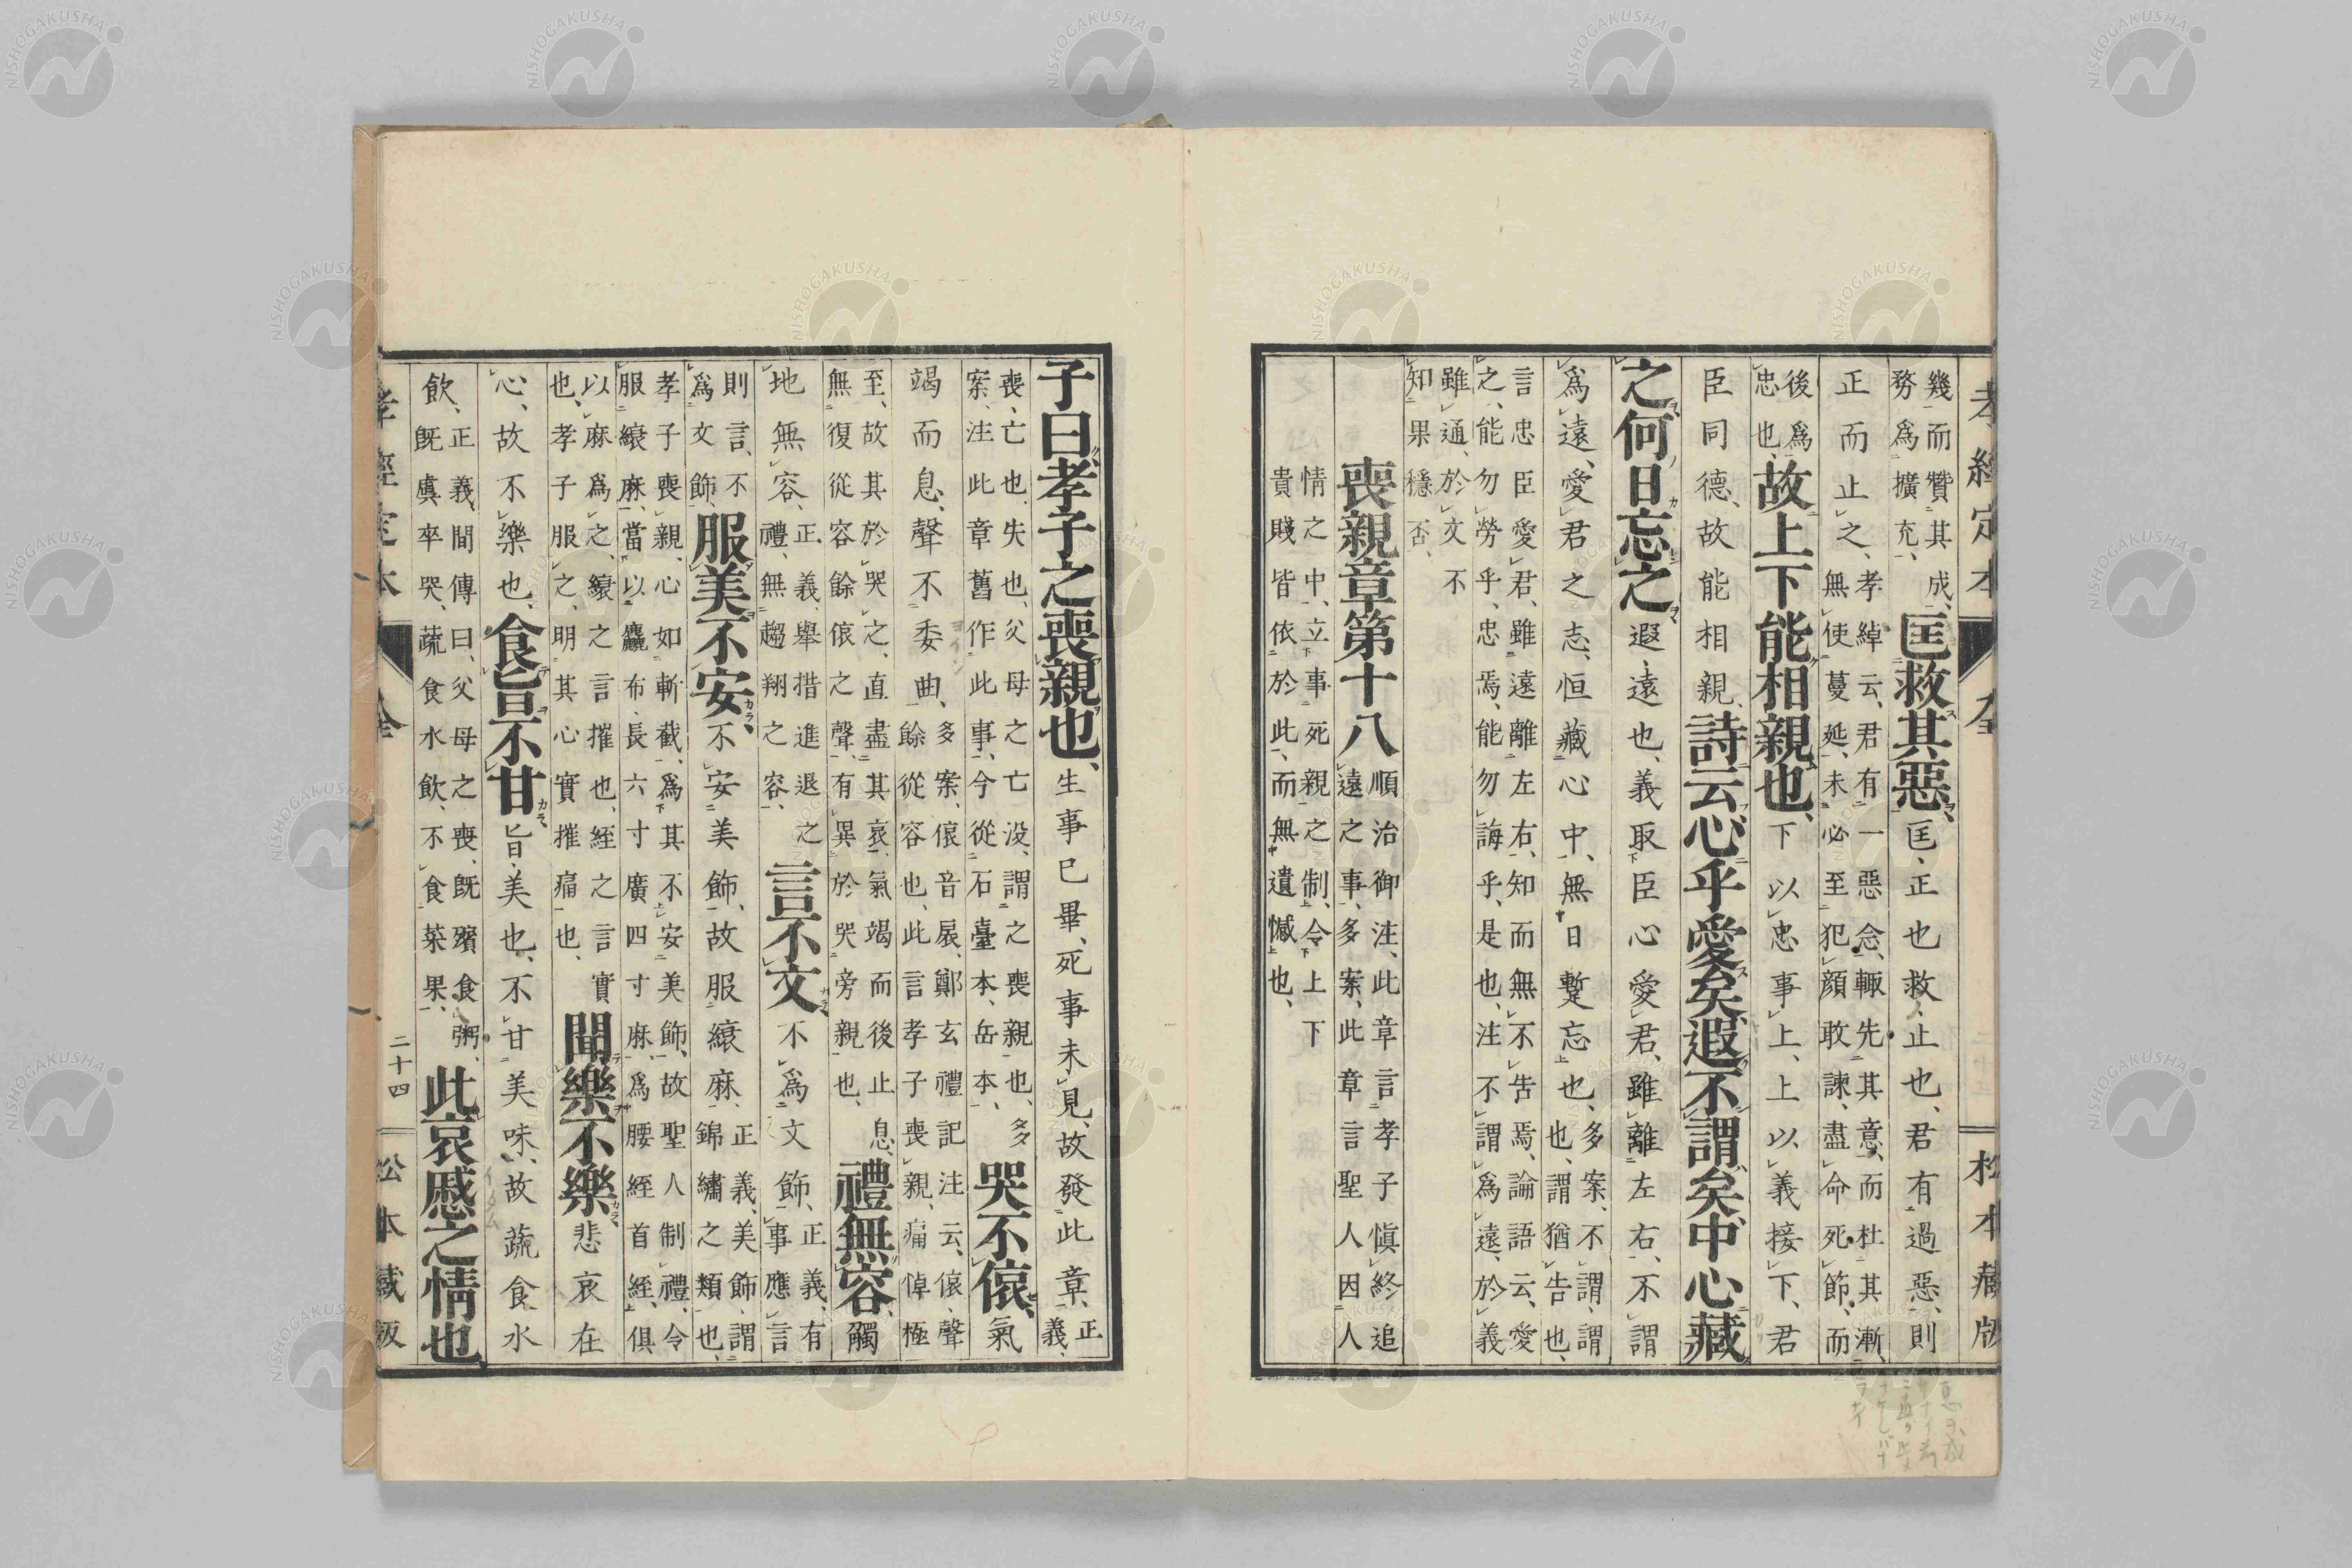 孝經定本　全　松本藏版
幾而贊其成、
務爲擴充、
匡救其惡、匡、正也、救、止也、君有過惡、則
正而止之、
孝綽云、君有一惡念、輙先其意、而杜其漸、
無使蔓延、未必至犯顔敢諫、盡命死節、而
後爲
忠也、
故上下能相親也、下以忠事上、上以義接下、君
臣同德、故能相親、詩云心乎愛矣遐不謂矣中心藏
之何日忘之遐、遠也、義取臣心愛君、雖離左右、不謂
爲遠、愛君之志、恒藏心中、無日蹔忘也、
多案、不謂、謂
也、謂猶告也、
言忠臣愛君、雖遠離左右、知而無不告焉、論語云、愛
之、能勿勞乎、忠焉、能勿誨乎、是也、注不謂爲遠、於義
雖通、於文不
知果穩否、
喪親章第十八
順治御注、此章言孝子愼終追
遠之事、多案、此章言聖人因人
情之中、立事死親之制、令上下
貴賤皆依於此、而無遺憾也、
子曰孝子之喪親也、生事已畢、死事未見、故發此章、
正
義、
喪、亡也、失也、父母之亡没、謂之喪親也、多
案、注此章舊作此事、今從石臺本、岳本、
哭不偯、氣
竭而息、聲不委曲、
多案、偯音扆、鄭玄禮記注云、偯、聲
餘從容也、此言孝子喪親、痛悼極
至、故其於哭之、直盡其哀、氣竭而後止息、
無復從容餘偯之聲、有異於哭旁親也、
禮無容、觸
地無容、
正義、舉措進退之
禮、無趨翔之容、
言不文、不爲文飾、
正義、有
事應言
則言、不
爲文飾、
服美不安、不安美飾、故服縗麻、
正義、美飾、謂
錦繡之類也、
孝子喪親、心如斬截、爲其不安美飾、故聖人制禮、令
服縗麻、當以麤布、長六寸廣四寸、麻爲腰絰首絰、俱
以麻爲之、縗之言摧也、絰之言實
也、孝子服之、明其心實摧痛也、
聞樂不樂悲哀在
心、故不樂也、食旨不甘旨、美也、不甘美味、故蔬食水
飲、
正義、間傳曰、父母之喪、旣殯食粥、
旣虞卒哭、蔬食水飲、不食菜果、
此哀慼之情也
孝經定本　全　二十四　松本藏版
NISHOGAKUSHA